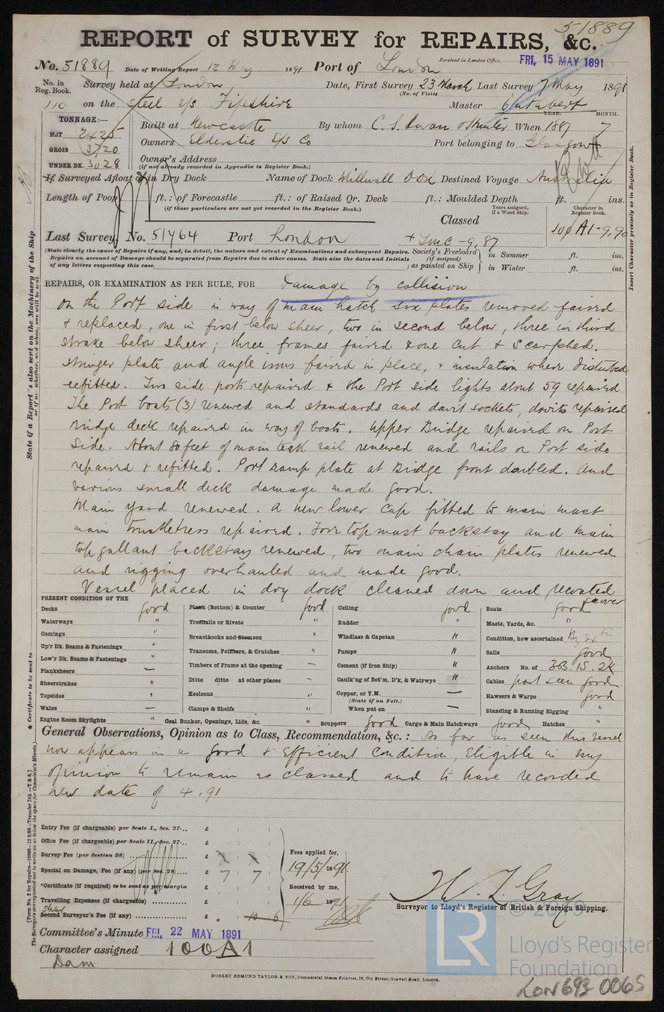 51889
REPORT of SURVEY for REPAIRS, &c.
No. 51889 Date of Writing Report 12 May 1891 Port of London Received in London Office, FRI, 15 MAY 1891
No. in Reg. Book. Survey held at London Date, First Survey 23 March Last Survey 7 May 1891
(No. of Visits
110 on the steel s/s Fifeshire Master
TONNAGE:—
NET 2425
GROSS 3720
UNDER DK. 3028
Built at Newcastle By whom C. S. Swan & Hunter When 1887 YEAR. MONTH. 7
Owners Elderslie S/S Co Port belonging to Glasgow
Owner's Address
(if not already recorded in Appendix to Register Book.)
If Surveyed Afloat or in Dry Dock Name of Dock Millwall Destined Voyage Australia
Length of Poop ft.: of Forecastle ft.: of Raised Qr. Deck ft.: Moulded Depth ft. ins.
(if these particulars are not yet recorded in the Register Book.)
Classed
Years assigned, if a Wood Ship.
Character in Register Book.
Last Survey, No. 51464 Port London
+ LMC-9,87
100A1-9.90
(State clearly the cause of Repairs if any, and, in detail, the nature and extent of Examinations and subsequent Repairs. Repairs on account of Damage should be separated from Repairs due to other causes. State also the dates and Initials of any letters respecting this case.
Society's Freeboard (if assigned) as painted on Ship
in Summer ft. ins.
in Winter ft. ins.
REPAIRS, OR EXAMINATION AS PER RULE, FOR Damage by collision
On the Port side in way of main hatch six plates removed faired
& replaced, one in first below sheer, two in second below, three in third
strake below sheer; three frames faired & one cut & scarphed.
stringer plate and angle irons faired in place, & insulation where disturbed
refitted. Two side ports repaired & the Port side lights about 59 repaired
The Port boats (3) renewed and standards and davit sockets, davits repaired
Bridge deck repaired in way of boats. Upper Bridge repaired on Port
Side. About 80 feet of main deck rail renewed and rails on Port side
repaired & refitted. Port ramp plate at Bridge front doubled. And
various small deck damage made good.
Main yard renewed. A new lower cap fitted to main mast
main trestletress repaired. Fore topmast backstay and main
top gallant backstay renewed, two main chain plates renewed
and rigging overhauled and made good.
Vessel placed in dry dock cleaned down and recoated
PRESENT CONDITION OF THE
Decks good
Waterways "
Comings "
Up'r Dk. Beams & Fastenings "
Low'r Dk. Beams & Fastenings "
Planksheers —
Sheerstrakes "
Topsides "
Wales —
Engine Room Skylights "
Plank (Bottom) & Counter good
Treenails or Rivets "
Breasthooks and Stemson "
Transoms, Pointers, & Crutches "
Timbers of Frame at the opening —
Ditto ditto at other places —
Keelsons "
Clamps & Shelfs "
Coal Bunker, Openings, Lids, &c. "
Ceiling good
Rudder "
Windlass & Capstan "
Pumps "
Cement (if Iron Ship) "
Caulk'ng of Bot'm, D'k, & Watrwys "
Copper, or Y.M. —
(State if on Felt.)
When put on —
Scuppers good Cargo & Main Hatchways good Hatches "
Boats good
Masts, Yards, &c. "
Condition, how ascertained
Sails good
Anchors No. of 3B, 1S, 2K
Cables part seen good
Hawsers & Warps good
Standing & Running Rigging "
General Observations, Opinion as to Class, Recommendation, &c.: As far as seen this vessel
now appears in a good & Efficient Condition, Eligible in my
opinion to remain as classed and to have recorded
new date of 4,91
Entry Fee (if chargeable) per Scale I., Sec. 27... £
Office Fee (if chargeable) per Scale II., Sec. 27... £
Survey Fee (per Section 28) £
Special on Damage, Fee (if any) (per Sec. 28) £ 7 7
*Certificate (if required) to be sent as per margin
Travelling Expenses (if chargeable) £
Second Surveyor's Fee (if any) £ 10 6
Fees applied for, 19/5/1891
Received by me,
1/6 1891
H. J. Gray
Surveyor to Lloyd's Register of British & Foreign Shipping.
Committee's Minute FRI, 22 MAY 1891
Character assigned 100A1
Dam
ROBERT EDMUND TAYLOR & SON, Commercial Steam Printers, 19, Old Street, Goswell Road, London.
LR
Lloyd's Register
Foundation
LON693-0065